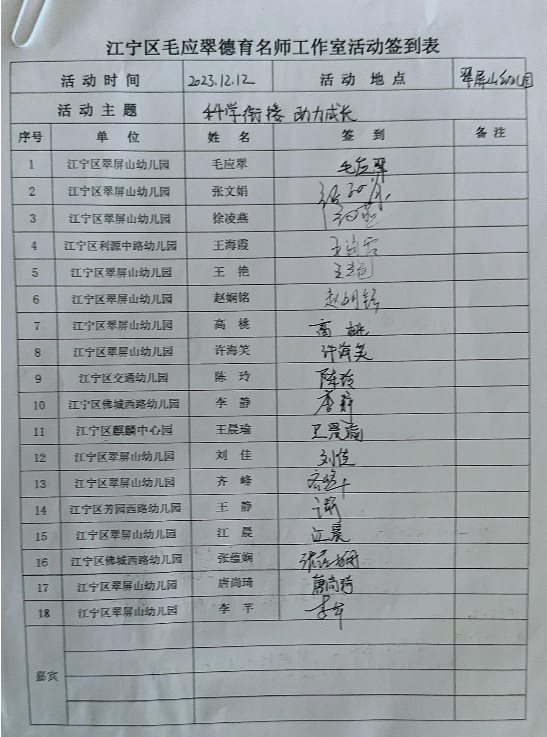 江宁区毛应翠德育名师工作室活动签到表
活动时间 2023.12.12 活动地点 翠屏山幼儿园
活动主题 科学衔接 助力成长
序号 单位 姓名 签到 备注
1 江宁区翠屏山幼儿园 毛应翠 毛应翠
2 江宁区翠屏山幼儿园 张文娟
3 江宁区翠屏山幼儿园 徐凌燕
4 江宁区利源中路幼儿园 王海霞 王海霞
5 江宁区翠屏山幼儿园 王艳 王艳
6 江宁区翠屏山幼儿园 赵娴铭 赵娴铭
7 江宁区翠屏山幼儿园 高桃 高桃
8 江宁区翠屏山幼儿园 许海笑 许海笑
9 江宁区交通幼儿园 陈玲 陈玲
10 江宁区佛城西路幼儿园 李静 李静
11 江宁区麒麟中心园 王晨瑜 王晨瑜
12 江宁区翠屏山幼儿园 刘佳 刘佳
13 江宁区翠屏山幼儿园 齐峰 齐峰
14 江宁区芳园西路幼儿园 王静
15 江宁区翠屏山幼儿园 江晨 江晨
16 江宁区佛城西路幼儿园 张蕴娴 张蕴娴
17 江宁区翠屏山幼儿园 唐尚琦 唐尚琦
18 江宁区翠屏山幼儿园 李芊 李芊
嘉宾